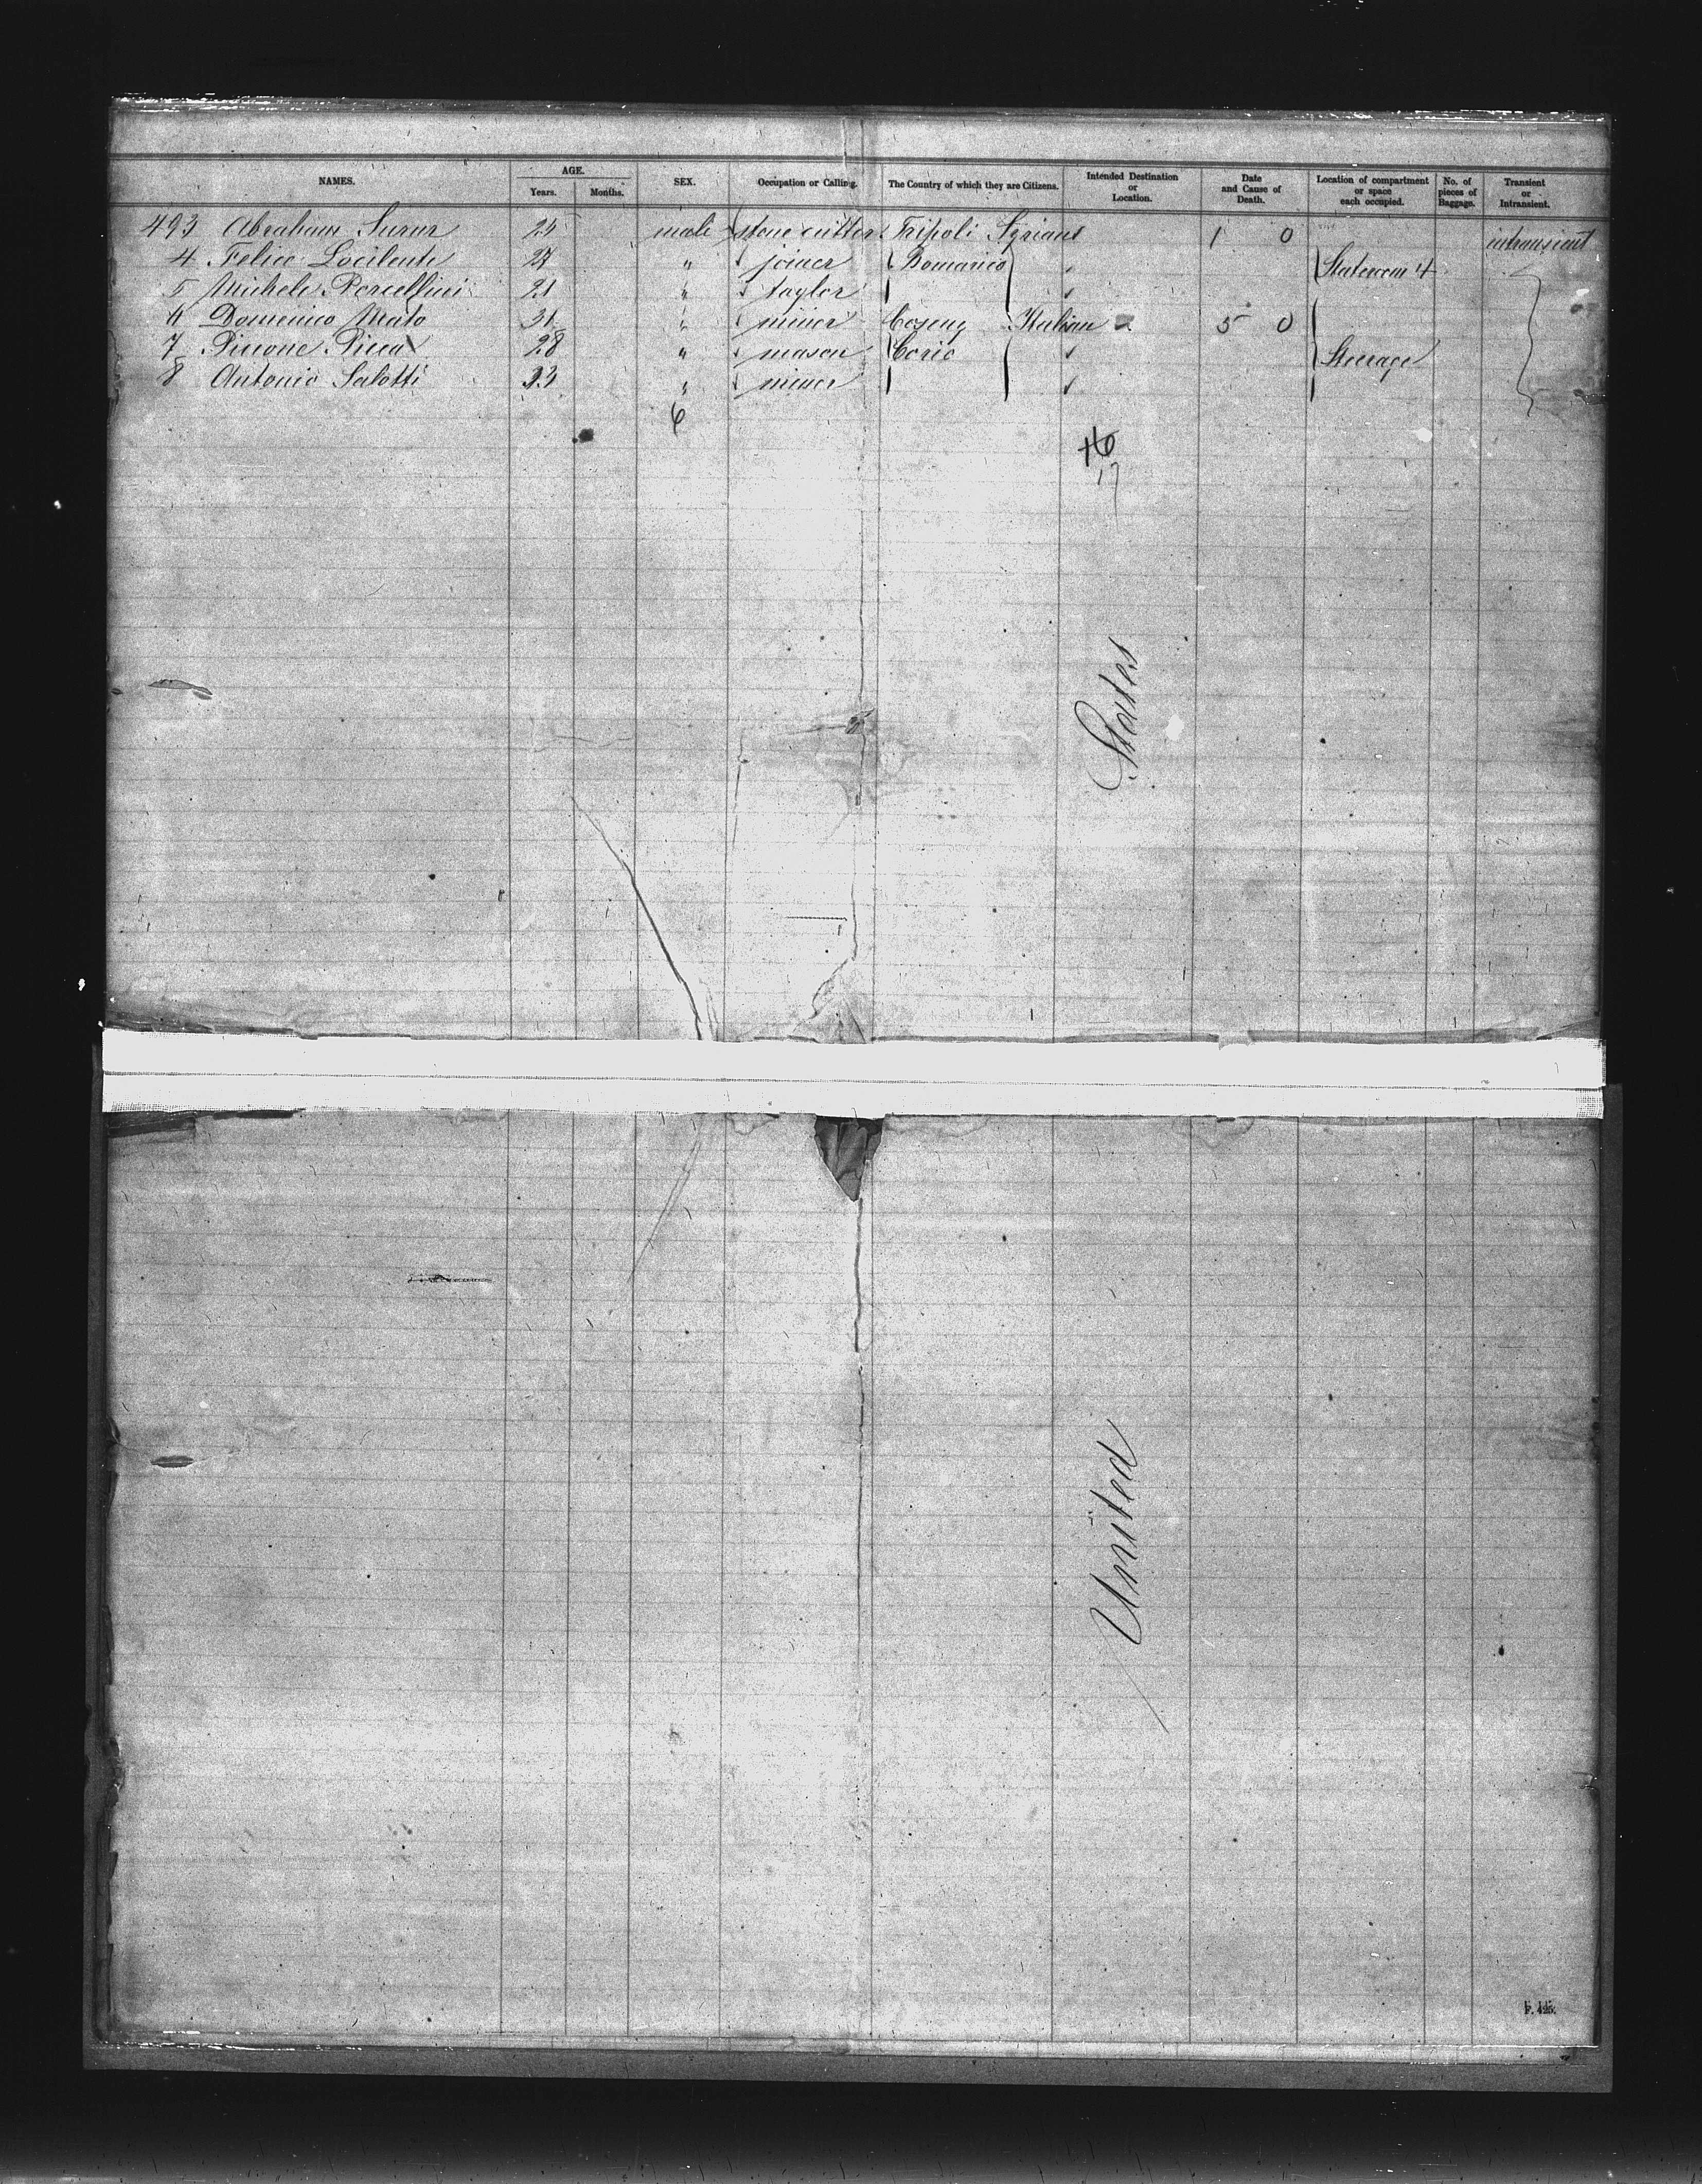 NAMES. AGE. Years. Months. SEX. Occupation or Calling. The Country of which they are Citizens. Intended Destination or Location. Date and Cause of Death. Location of compartment or space each occupied. No. of pieces of Baggage. Transient or Intransient.
493 Abraham Surur 25 male stone cutter Tripoli Syrians 1 0 intransient
4 Felice Locilente 27 " joiner Domanico Stateroom 4
5 Michele Porcellini 21 " taylor
6 Domenico Mato 31 " miner Coseny Italian 5 0
7 Picca 28 " mason Corio Steerage
8 Antonio Salotti 33 " miner
6
16
17
States
United
F. 425.